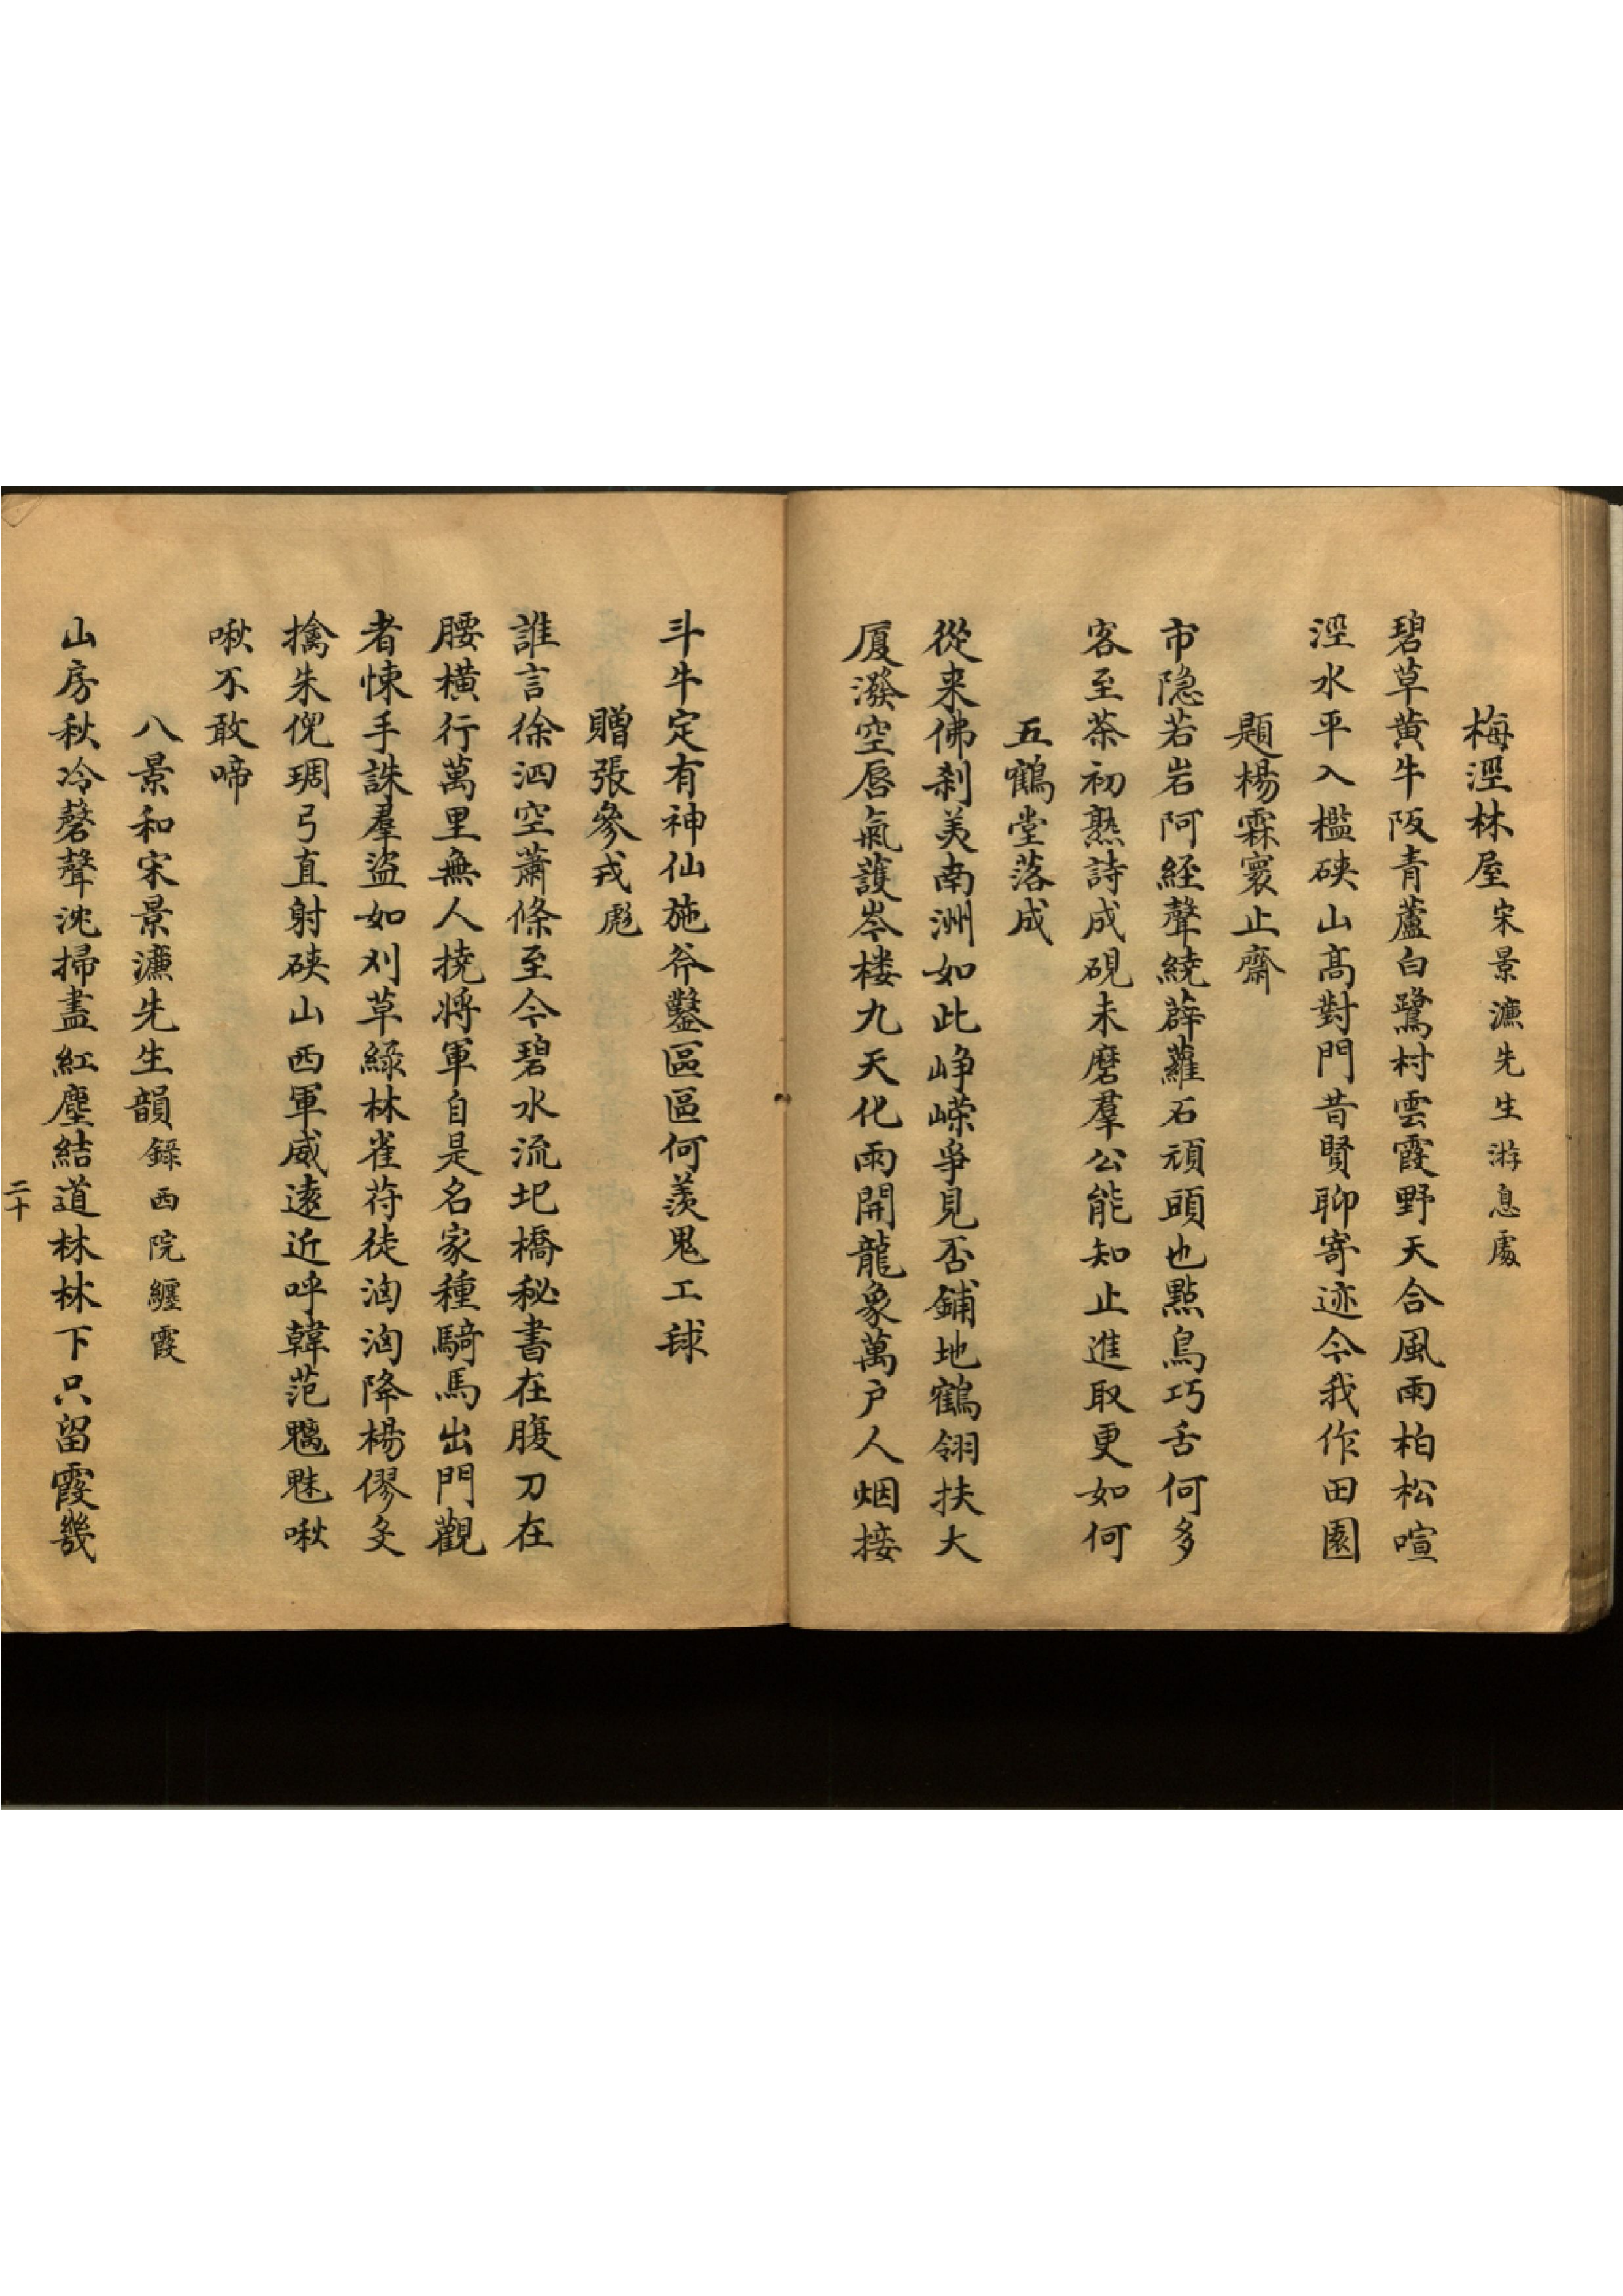 梅涇林屋宋景濂先生游息處
碧草黄牛阪青蘆白鷺村雲霞野天合風雨柏松喧
涇水平入檻硤山高對門昔賢聊寄迹今我作田園
題楊霖寰止齋
市隐若岩阿經聲繞薜蘿石頑頭也點鳥巧舌何多
客至茶初熟詩成硯未磨羣公能知止進取更如何
五鶴堂落成
從来佛刹美南洲如此峥嶸爭見否鋪地鶴翎扶大
厦潑空唇氣護岑楼九天化雨開龍象萬户人烟接
斗牛定有神仙施斧鑿區區何羨鬼工毬
贈張參戎彪
誰言徐泗空蕭條至今碧水流圯橋秘書在腹刀在
腰橫行萬里無人撓将軍自是名家種騎馬出門觀
者悚手誅羣盜如刈草綠林雀苻徒洶洶降楊僇
擒朱倪琱弓直射硤山西軍威遠近呼韓范魑魅啾
啾不敢啼
八景和宋景濂先生韻錄西院纏霞
山房秋冷磬聲沈掃盡紅塵結道林林下只留霞幾
二十